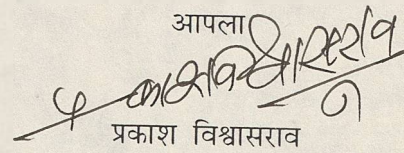 आपला
प्रकाश विश्वासराव
प्रकाश विश्वासराव